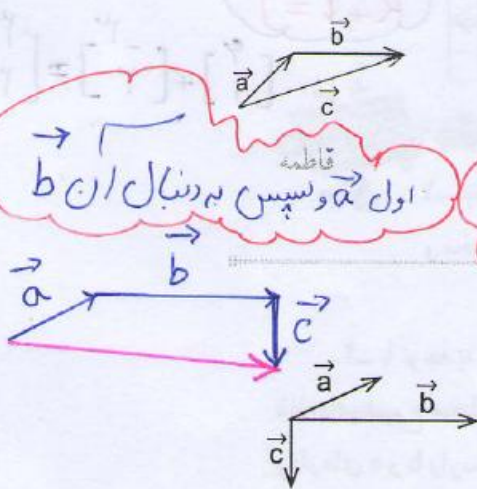 b
a
c
فاطمه
اول a و سپس به دنبال آن b
b
a
c
a
b
c